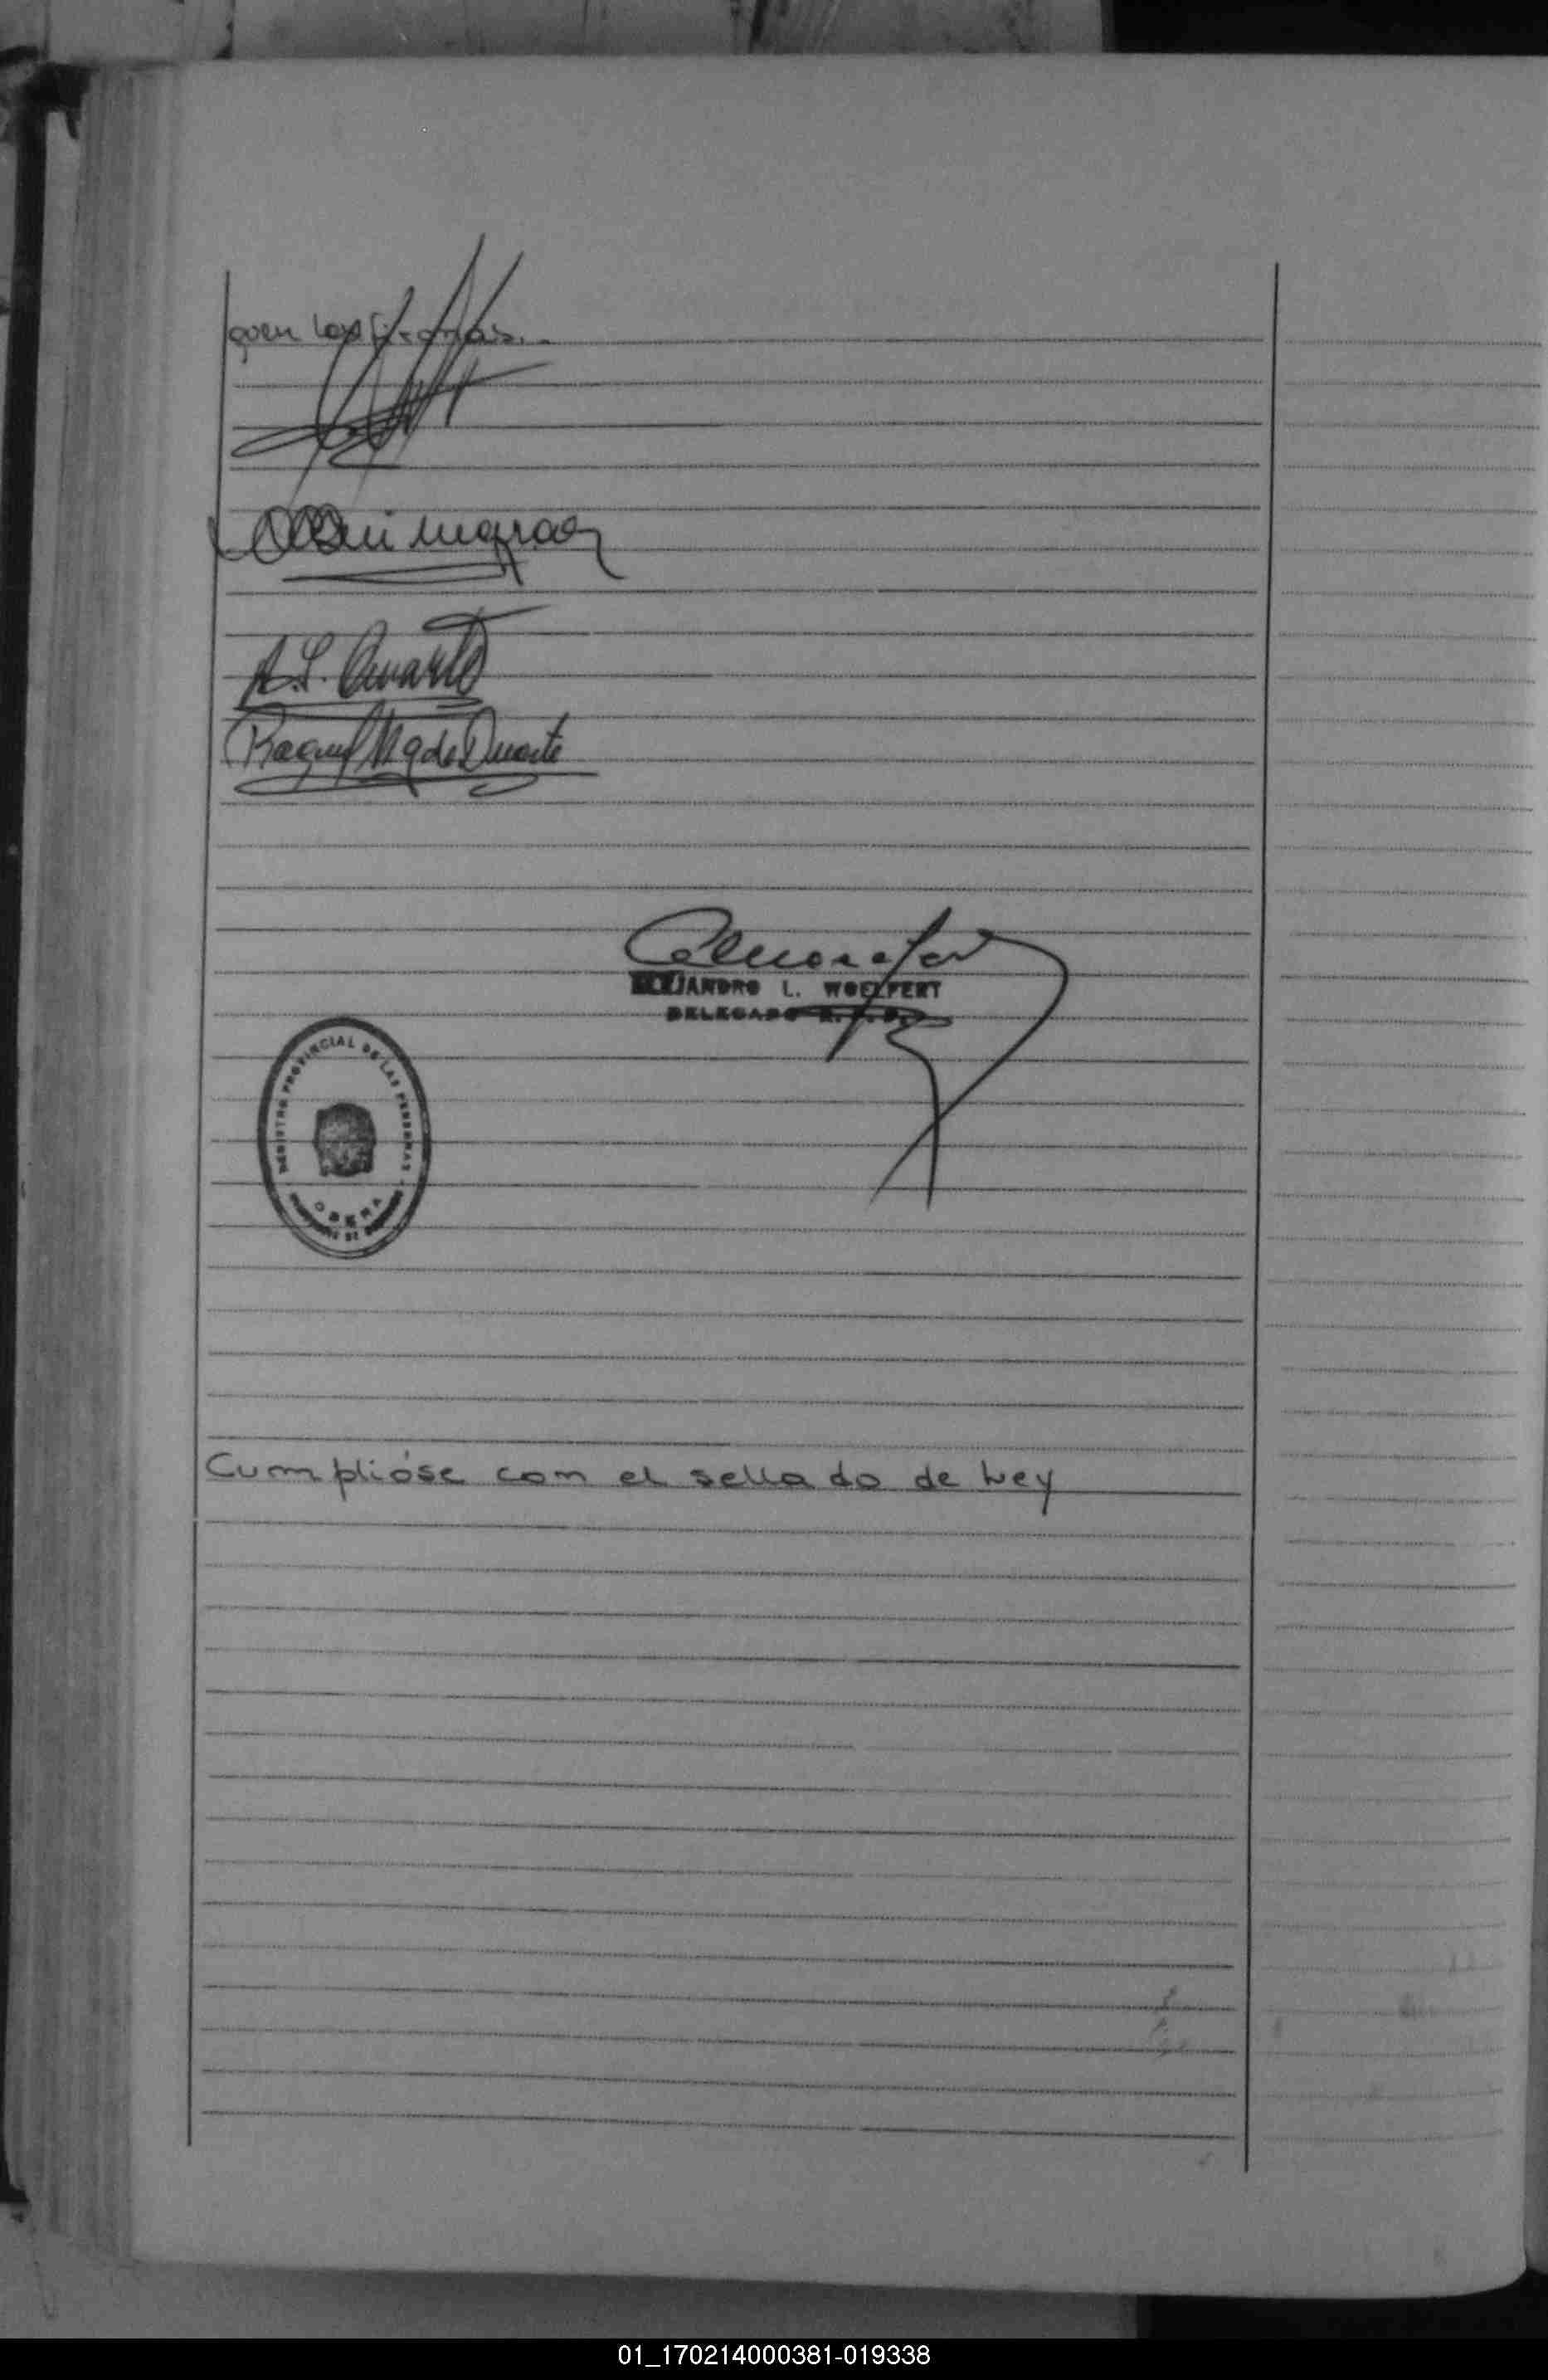 guen las firmas.-
A.L. Duarte
Raquel M. de Duarte
ALEJANDRO L. WOELFERT
DELEGADO R.P.P.
REGISTRO PROVINCIAL DE LAS PERSONAS
OBERA
Cumplióse com el sellado de Ley
01_170214000381-019338